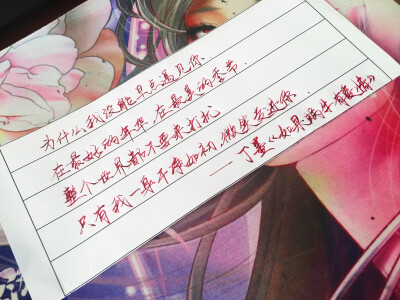 为什么我没能早点遇见你
在最好的年华,在最美的季节.
整个世界都不要来打扰
只有我一身干净如初,微笑变迷你.
——丁墨《如果蜗牛有爱情》